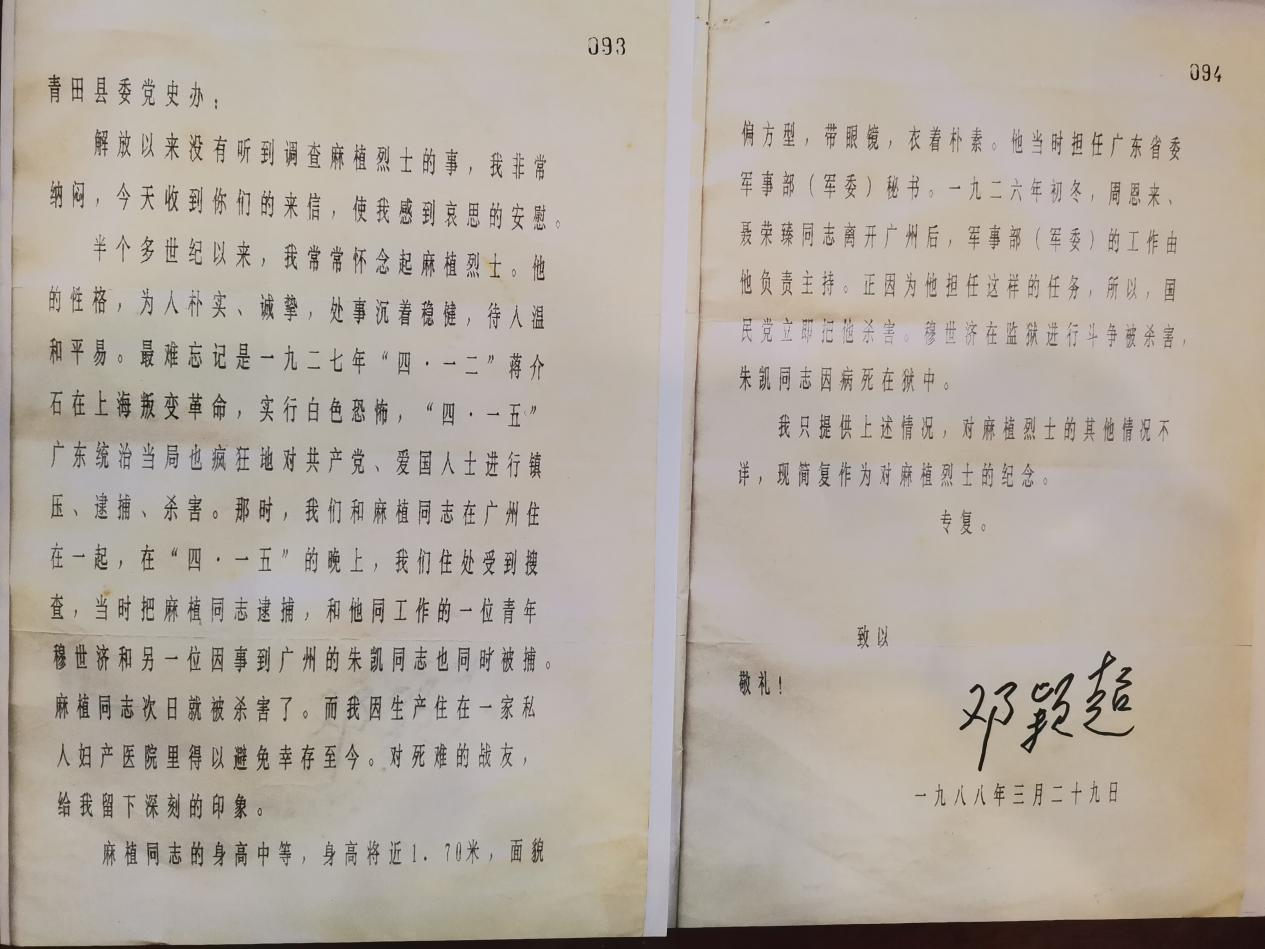 093
青田县委党史办：
解放以来没有听到调查麻植烈士的事，我非常
纳闷，今天收到你们的来信，使我感到哀思的安慰。
半个多世纪以来，我常常怀念起麻植烈士。他
的性格，为人朴实、诚挚，处事沉着稳健，待人温
和平易。最难忘记是一九二七年“四·一二”蒋介
石在上海叛变革命，实行白色恐怖，“四·一五”
广东统治当局也疯狂地对共产党、爱国人士进行镇
压、逮捕、杀害。那时，我们和麻植同志在广州住
在一起，在“四·一五”的晚上，我们住处受到搜
查，当时把麻植同志逮捕，和他同工作的一位青年
穆世济和另一位因事到广州的朱凯同志也同时被捕。
麻植同志次日就被杀害了。而我因生产住在一家私
人妇产医院里得以避免幸存至今。对死难的战友，
给我留下深刻的印象。
麻植同志的身高中等，身高将近1.70米，面貌
094
偏方型，带眼镜，衣着朴素。他当时担任广东省委
军事部（军委）秘书。一九二六年初冬，周恩来、
聂荣臻同志离开广州后，军事部（军委）的工作由
他负责主持。正因为他担任这样的任务，所以，国
民党立即把他杀害。穆世济在监狱进行斗争被杀害，
朱凯同志因病死在狱中。
我只提供上述情况，对麻植烈士的其他情况不
详，现简复作为对麻植烈士的纪念。
专复。
致以
敬礼！
邓颖超
一九八八年三月二十九日